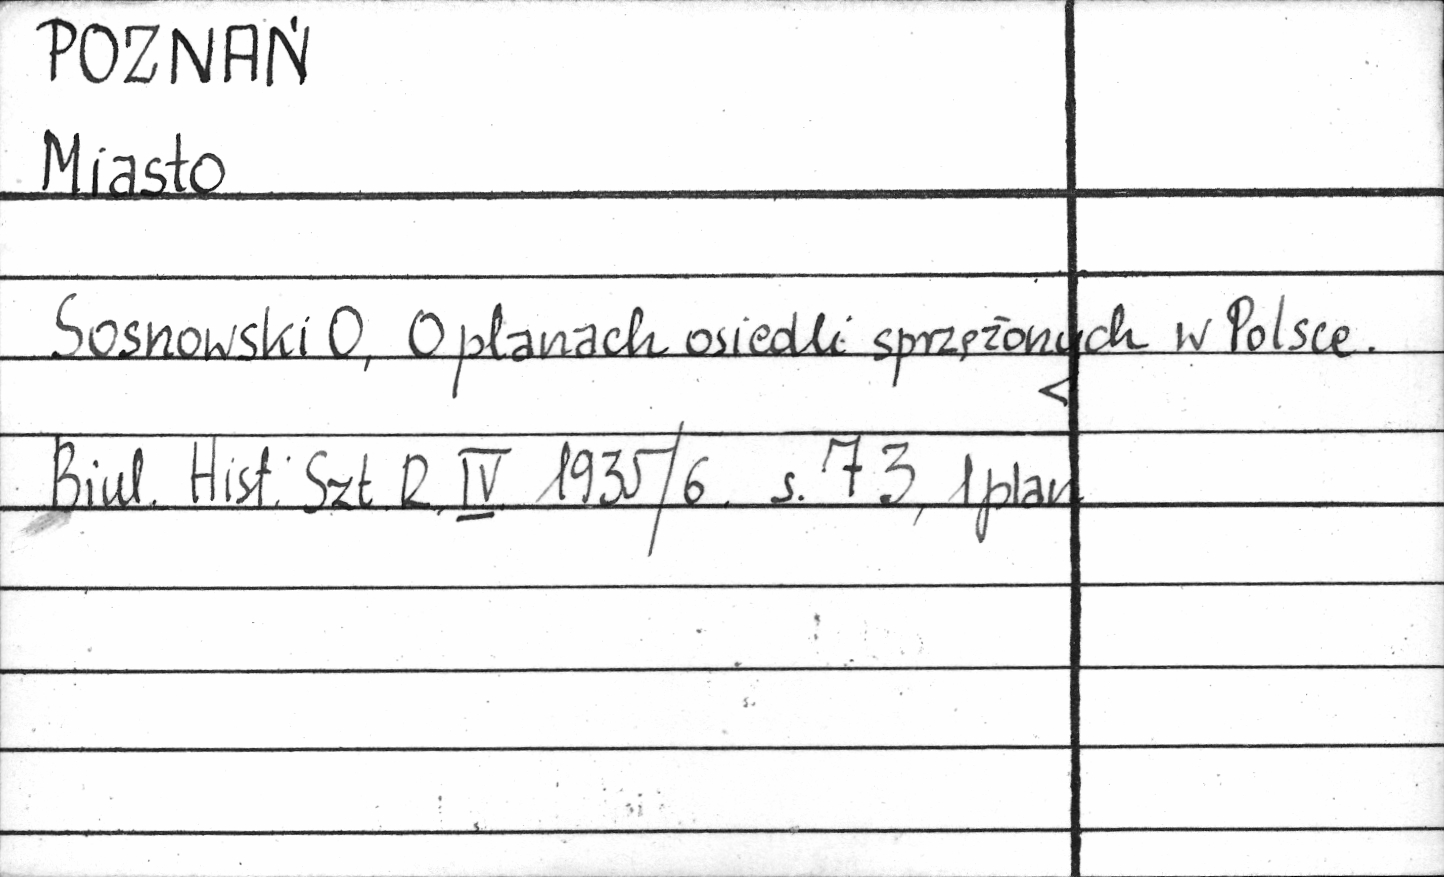 POZNAŃ
Miasto
Sosnowski O, O planach osiedli sprzężonych w Polsce.
Biul. Hist. Szt. R. IV 1935/6. s. 73, 1 plan